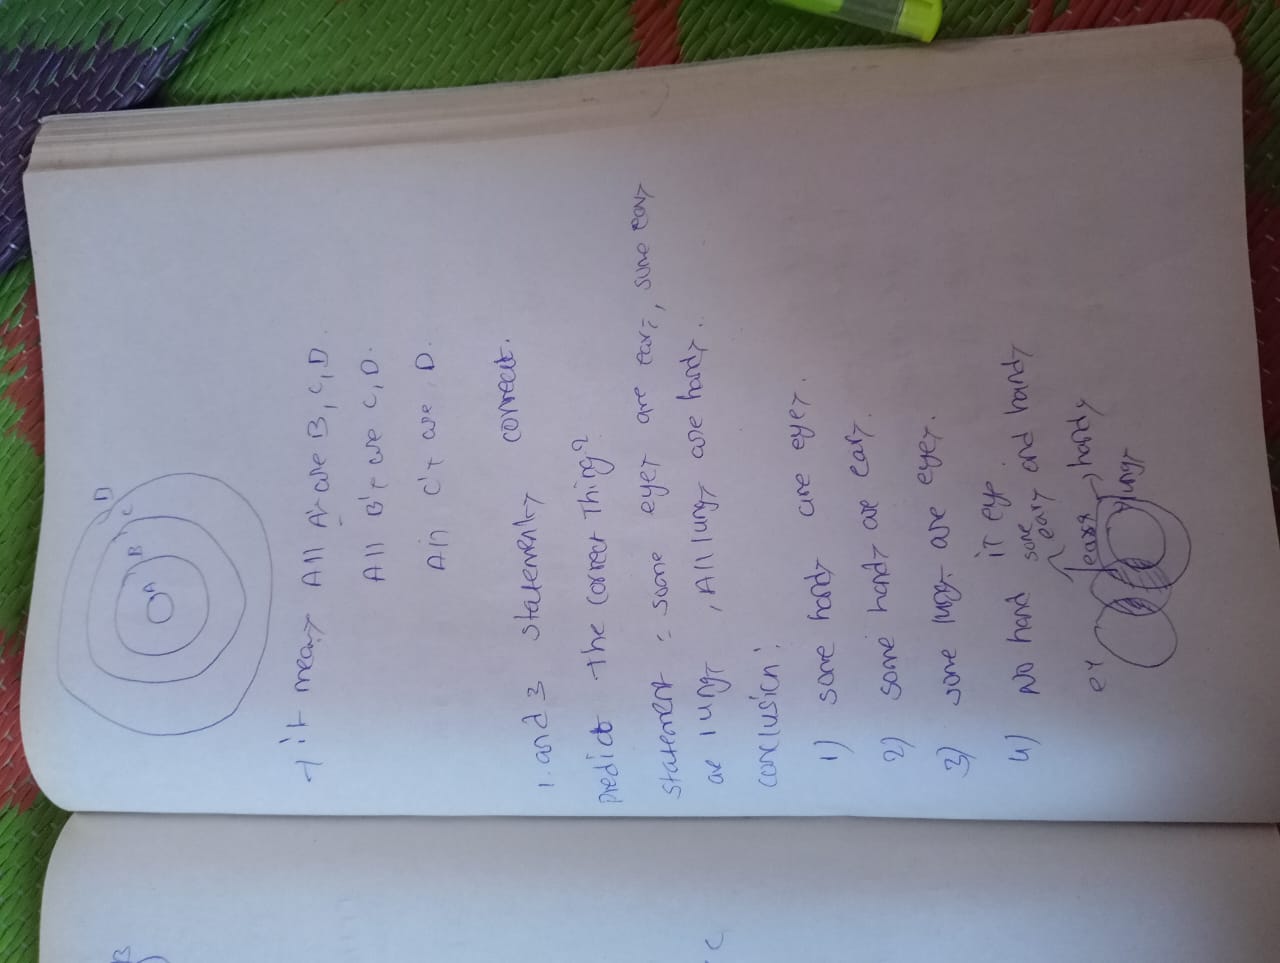 D
C
B
A
→ it means All A's are B, C, D.
All B's are C, D.
All C's are D.
1. and 3 statements correct.
Predict the correct Thing?
statement : some eyes are ears, some ears
are lungs, All lungs are hands.
conclusion:
1) some hands are eyes.
2) some hands are ears.
3) some lungs are eyes.
4) No hand is eye.
some ears and hands
ears hands
ey lungs
B
C